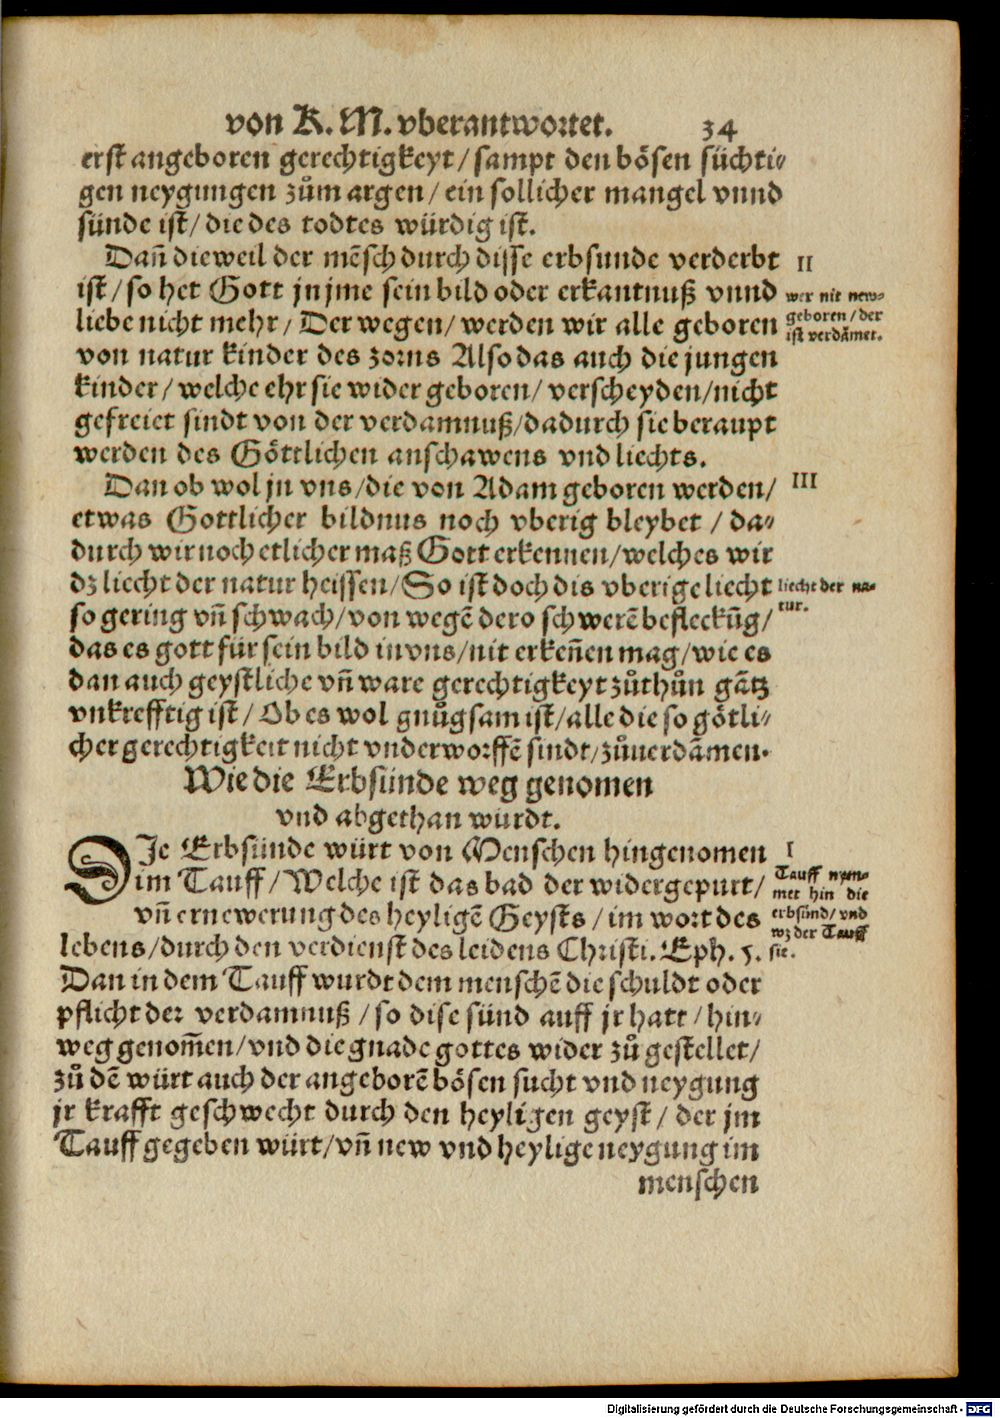 von K. M. vberantwortet. 34
erst angeboren gerechtigkeyt/ sampt den bösen süchti⸗
gen neygungen zům argen/ ein sollicher mangel vnnd
sünde ist/ die des todtes würdig ist.
Dañ dieweil der mẽsch durch disse erbsunde verderbt
II
ist/ so het Gott jn jme sein bild oder erkantnuß vnnd
wer nit new⸗
liebe nicht mehr/ Der wegen/ werden wir alle geboren
geboren/ der
ist verdãmet.
von natur kinder des zorns Also das auch die jungen
kinder/ welche ehr sie wider geboren/ verscheyden/ nicht
gefreiet sindt von der verdamnuß/ dadurch sie beraupt
werden des Göttlichen anschawens vnd liechts.
Dan ob wol jn vns/ die von Adam geboren werden/
III
etwas Gottlicher bildnus noch vberig bleybet / da⸗
durch wir noch etlicher maß Gott erkennen/ welches wir
dz liecht der natur heissen/ So ist doch dis vberige liecht
liecht der na⸗
tur.
so gering vñ schwach/ von wegẽ dero schwerẽ befleckũg/
das es gott für sein bild in vns/ nit erkeñen mag/ wie es
dan auch geystliche vñ ware gerechtigkeyt zůthůn gãtz
vnkrefftig ist/ Ob es wol gnůgsam ist/ alle die so götli⸗
cher gerechtigkeit nicht vnderworffẽ sindt/ zůuerdãmen.
Wie die Erbsünde weg genomen
vnd abgethan wurdt.
DJe Erbsünde würt von Menschen hingenomen
I
im Tauff/ Welche ist das bad der widergepurt/
Tauff nym⸗
met hin die
vñ ernewerung des heyligẽ Geysts/ im wort des
erbsünd/ vnd
wz der Tauff
lebens/ durch den verdienst des leidens Christi. Eph. 5.
sie.
Dan in dem Tauff wurdt dem menschẽ die schuldt oder
pflicht der verdamnuß/ so dise sünd auff jr hatt/ hin⸗
weg genom̃en/ vnd die gnade gottes wider zů gestellet/
zů dẽ würt auch der angeborẽ bösen sucht vnd neygung
jr krafft geschwecht durch den heyligen geyst/ der jm
Tauff gegeben würt/ vñ new vnd heylige neygung im
menschen
Digitalisierung gefördert durch die Deutsche Forschungsgemeinschaft - DFG